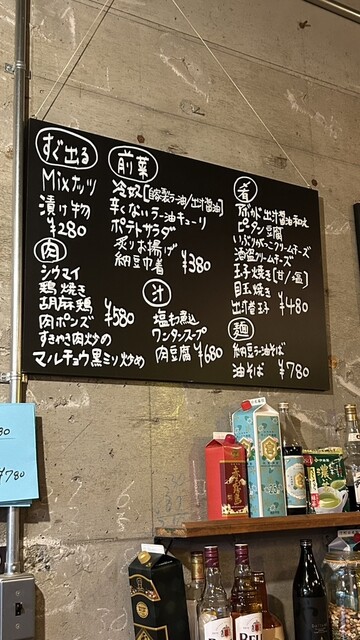 すぐ出る
Mixナッツ
漬け物
¥280
肉
シウマイ
鶏焼き
胡麻鶏
肉ポンズ ¥580
すきやき肉炒め
マルチョウ黒ミソ炒め
前菜
冷奴[自家製ラー油/出汁醤油]
辛くないラー油キューリ
ポテトサラダ
炙り お揚げ
納豆巾着 ¥380
汁
塩もつ煮込
ワンタンスープ
肉豆腐 ¥680
肴
アボカド出汁醤油和え
ピータン豆腐
いぶりがっこクリームチーズ
酒盗クリームチーズ
玉子焼き[甘/塩]
目玉焼き
出汁煮玉子 ¥480
麺
納豆ラー油そば
油そば ¥780
80
¥780